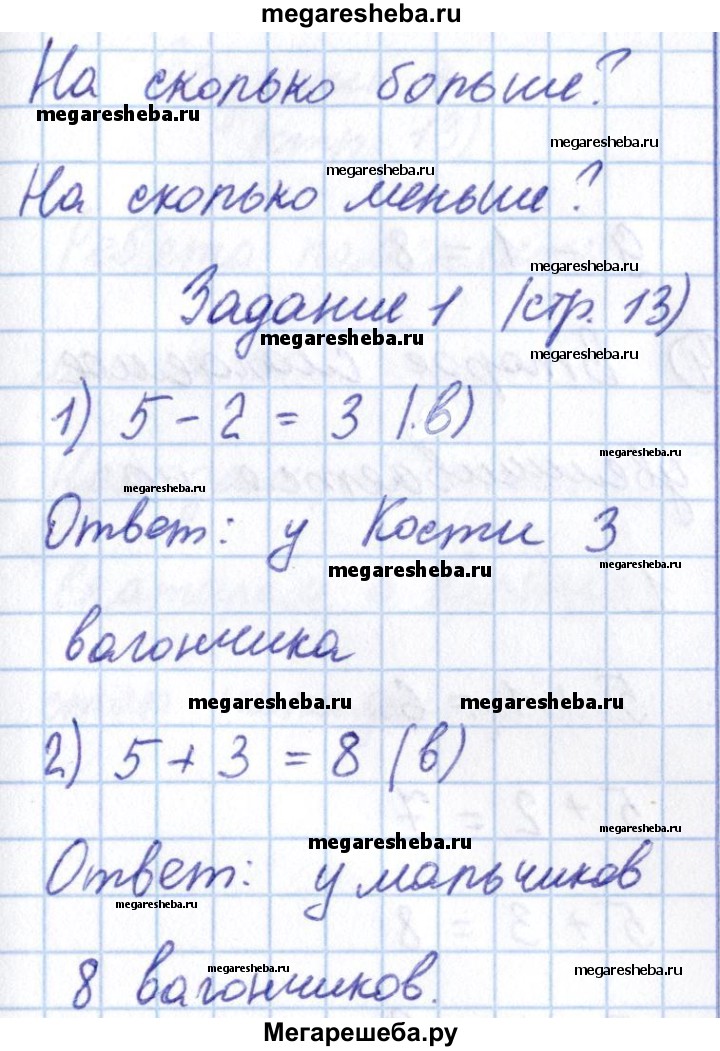 megaresheba.ru
На сколько больше?
megaresheba.ru
megaresheba.ru
megaresheba.ru
На сколько меньше?
megaresheba.ru
Задание 1 (стр. 13)
megaresheba.ru
megaresheba.ru
1) 5 - 2 = 3 (в)
megaresheba.ru
megaresheba.ru
Ответ: у Кости 3
megaresheba.ru
megaresheba.ru
вагончика
megaresheba.ru
megaresheba.ru
2) 5 + 3 = 8 (в)
megaresheba.ru
megaresheba.ru
Ответ: у мальчиков
megaresheba.ru
megaresheba.ru
megaresheba.ru
8 вагончиков.
Мегарешеба.ру